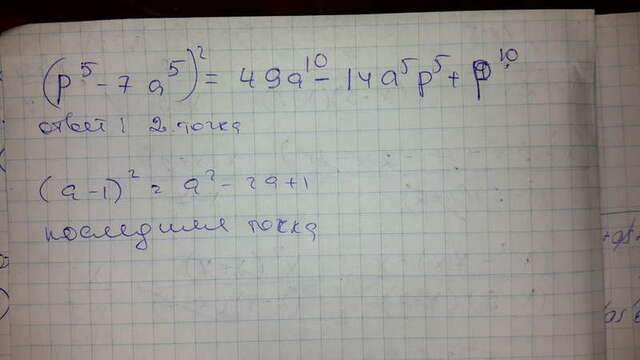 (p⁵ - 7a⁵)² = 49a¹⁰ - 14a⁵p⁵ + p¹⁰
ответ: 2 точка
(a-1)² = a² - 2a+1
последняя точка